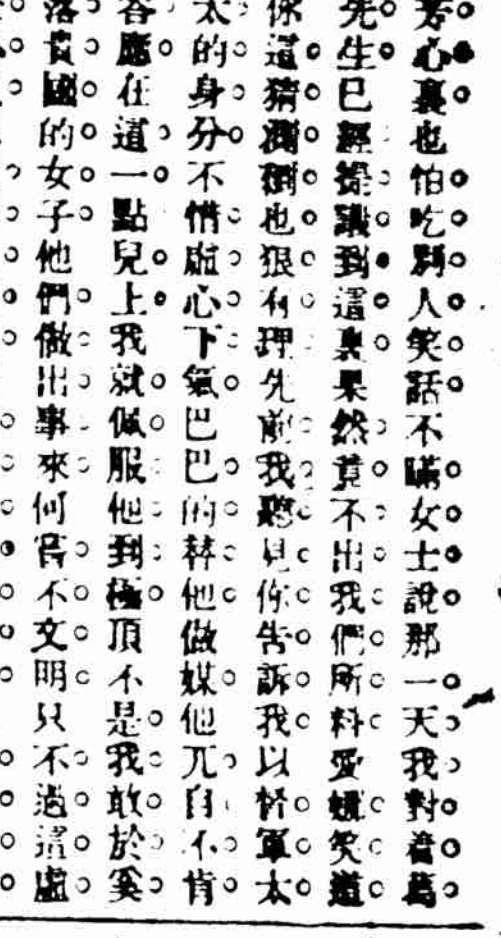 芳心裏也怕吃別人笑話不瞞女士說那一天我對着萬
先生已經提議到這裏果然竟不出我們所料愛娜笑道
你這猜測倒也狠有理先前我聽見你告訴我以督軍太
太的身分不惜虛心下氣巴巴的替他做媒他兀自不肯
答應在這一點兒上我就佩服他到極頂不是我敢於奚
落貴國的女子他們做出事來何嘗不文明只不過這虛